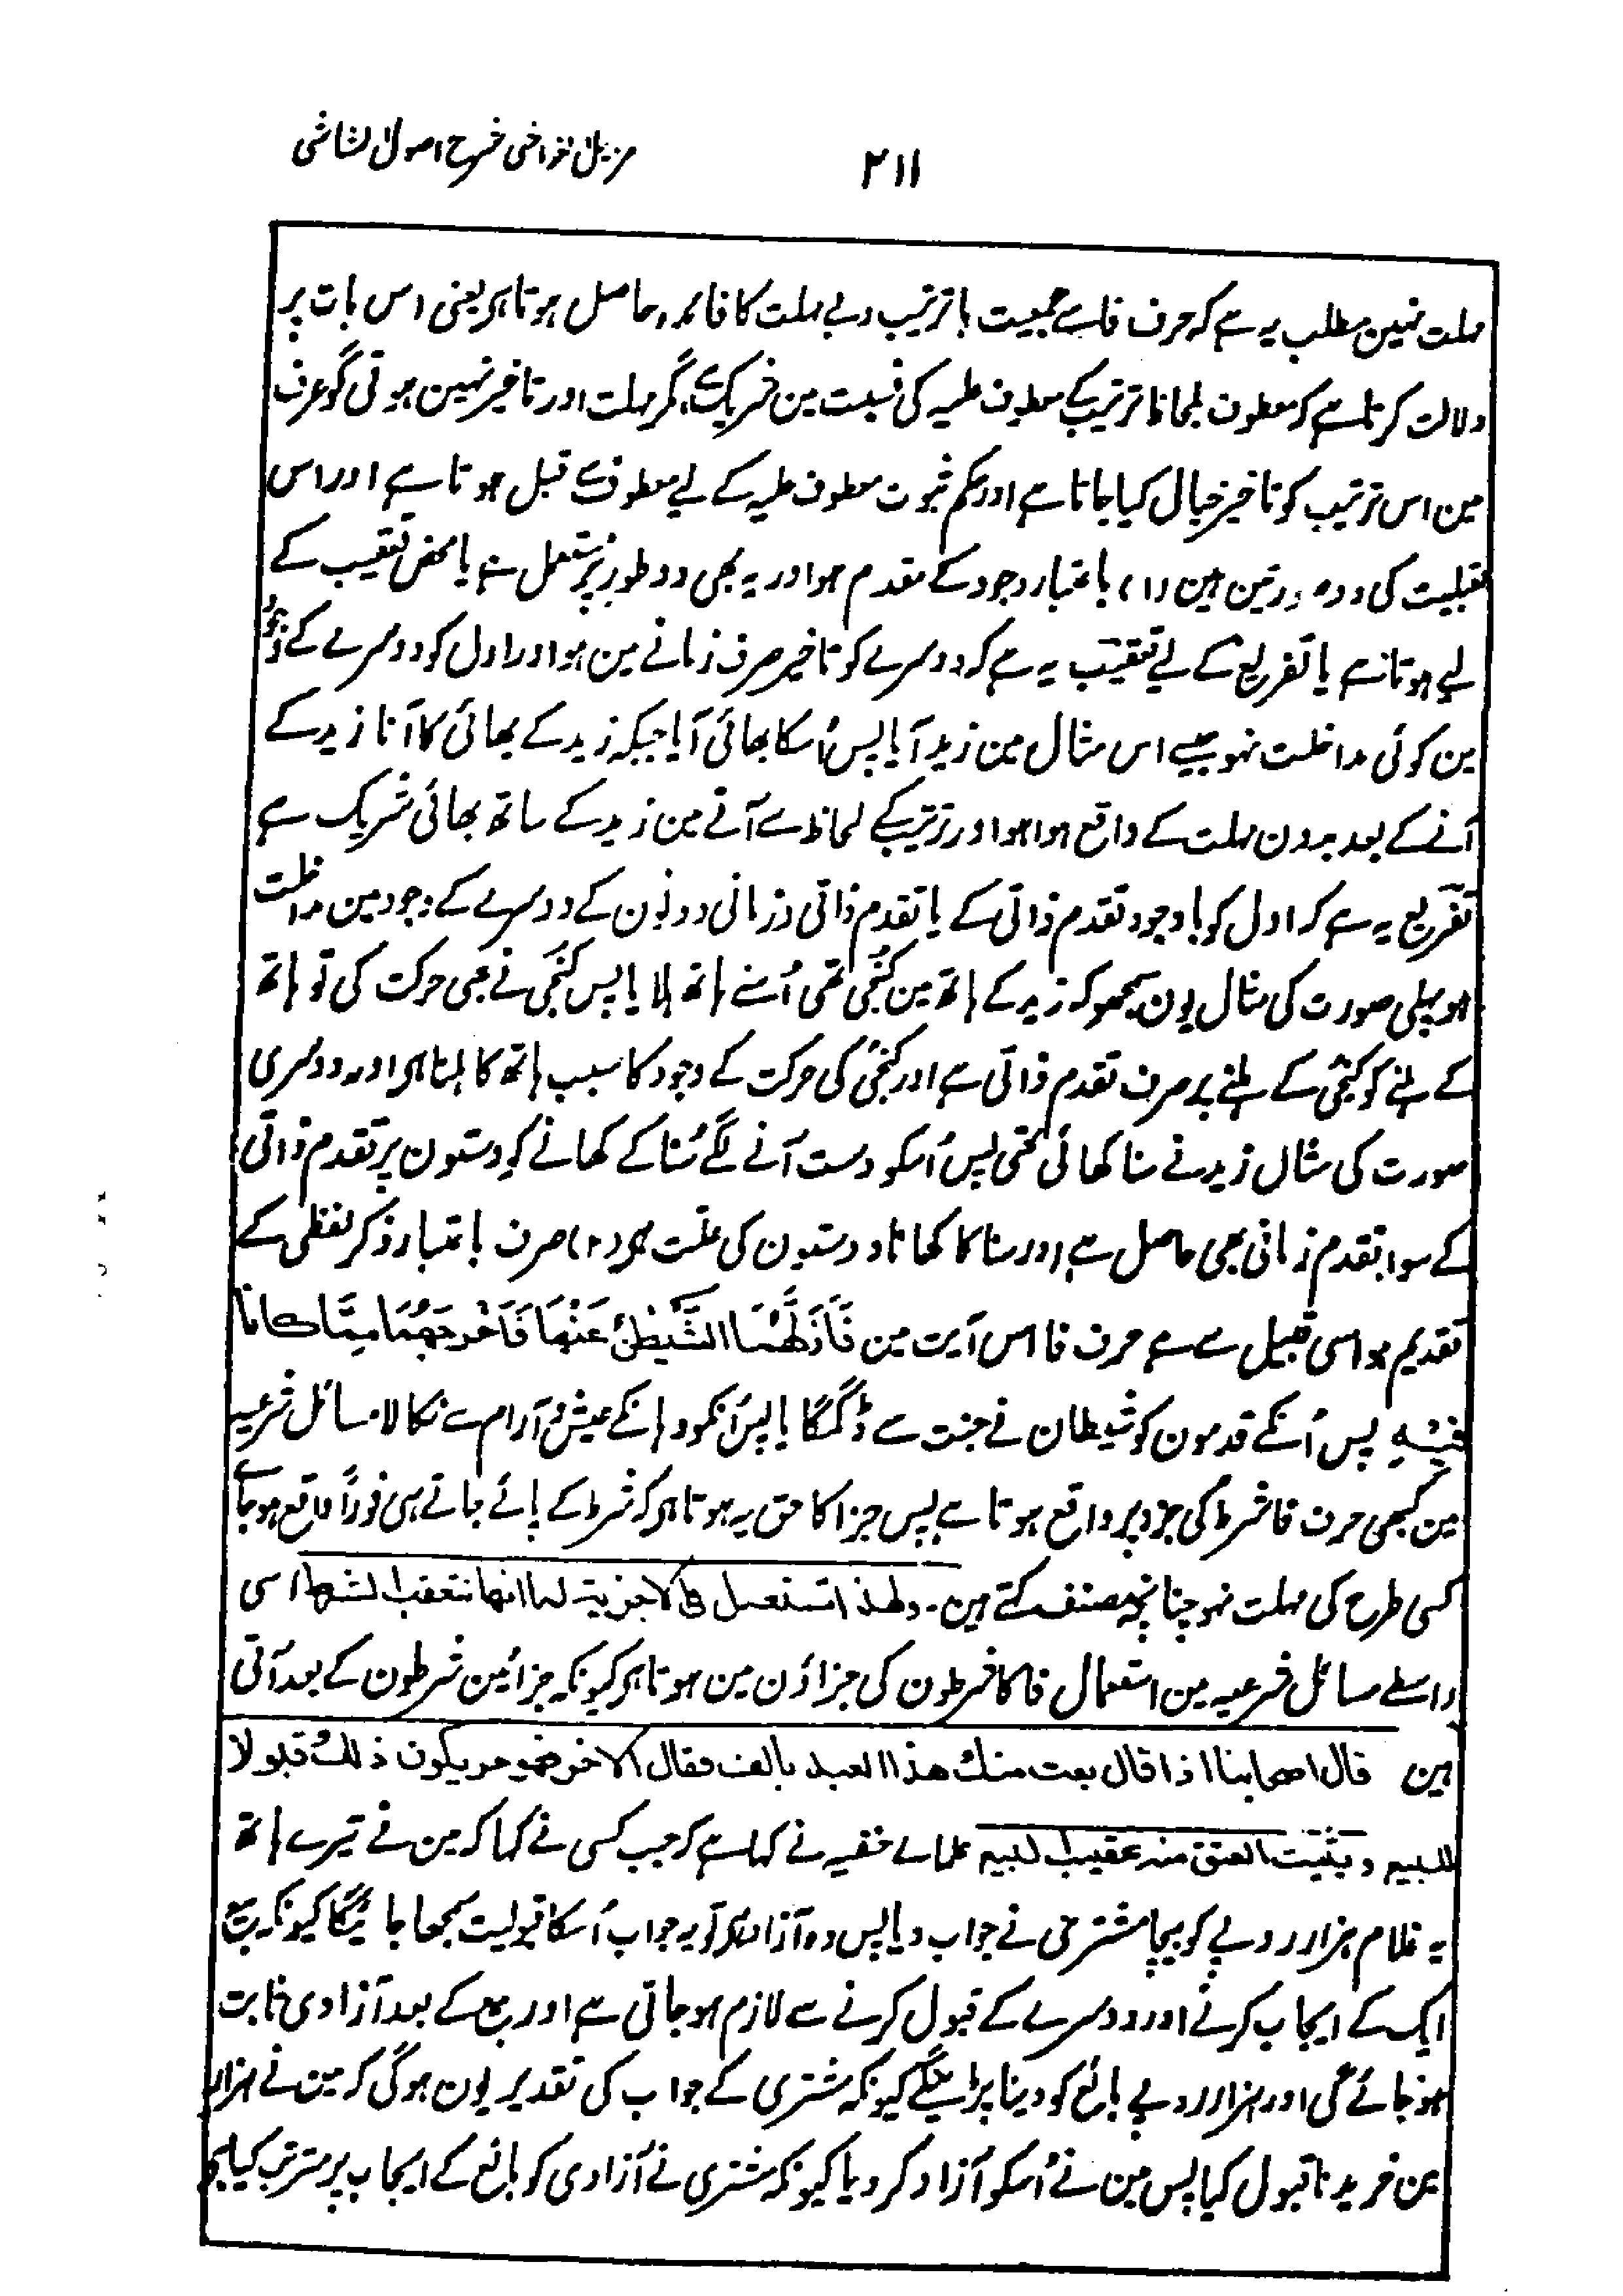 ۲۱۱
مزیل الغواشی شرح اصول الشاشی
مہلت نہین مطلب یہ ہے کہ حرف فا سے جمعیت با ترتیب و بے مہلت کا فائدہ حاصل ہوتا ہے یعنی اس بات پر
دلالت کرتا ہے کہ معطوف بلحاظ ترتیب کے معطوف علیہ کی نسبت مین شریک ہے مگر مہلت اور تاخیر نہین ہوتی گو عرف
مین اس ترتیب کو تاخیر خیال کیا جاتا ہے اور حکم ثبوت معطوف علیہ کے لیے معطوف سے قبل ہوتا ہے اور اس
قبلیت کی دو صورتین ہین (۱) باعتبار وجود کے مقدم ہو اور یہ بھی دو طور پر مستعمل ہے یا محض تعقیب کے
لیے ہوتا ہے یا تفریع کے لیے تعقیب یہ ہے کہ دوسرے کو تاخیر صرف زمانے مین ہو اور اول کو دوسرے کے وجود
مین کوئی مداخلت نہو جیسے اس مثال مین زید آیا پس اُسکا بھائی آیا جبکہ زید کے بھائی کا آنا زید کے
آنے کے بعد بدون مہلت کے واقع ہوا ہو اور ترتیب کے لحاظ سے آنے مین زید کے ساتھ بھائی شریک ہے
تفریع یہ ہے کہ اول کو باوجود تقدم ذاتی کے یا تقدم ذاتی و زمانی دونون کے دوسرے کے وجود مین مداخلت
ہو پہلی صورت کی مثال یون سمجھو کہ زید کے ہاتھ مین کُنجی تھی اُسنے ہاتھ ہلایا پس کُنجی نے بھی حرکت کی تو ہاتھ
کے ہلنے کو کنجی کے ہلنے پر صرف تقدم ذاتی ہے اور کنجی کی حرکت کے وجود کا سبب ہاتھ کا ہلنا ہے اور دوسری
صورت کی مثال زید نے سنا کھائی تھی پس اُسکو دست آنے لگے سنا کے کھانے کو دستون پر تقدم ذاتی
کے سوا تقدم زمانی بھی حاصل ہے اور سنا کا کھانا دستون کی علت ہے (۲) صرف باعتبار ذکر لفظی کے
تقدیم ہو اسی قبیل سے ہے حرف فا اس آیت مین فَاَزَلَّهُمَا الشَّيْطٰنُ عَنْهَا فَاَخْرَجَهُمَا مِمَّا كَانَا
فِيْهِ پس اُنکے قدمون کو شیطان نے جنت سے ڈگمگایا پس اُنکو وہانکے عیش و آرام سے نکالا مسائل شرعیہ
مین کبھی حرف فا شرط کی جزا پر واقع ہوتا ہے پس جزا کا حق یہ ہوتا ہے کہ شرط کے پائے جاتے ہی فوراً واقع ہو جائے
کسی طرح کی مہلت نہو چنانچہ مصنف کہتے ہین۔ ولهذا تستعمل فى الاجزية لما انها تتعقب الشرط اسی
واسطے مسائل شرعیہ مین استعمال فا کا شرطون کی جزاؤن مین ہوتا ہے کیونکہ جزائین شرطون کے بعد آتی
ہین قال اصحابنا اذا قال بعت منك هذا العبد بالف فقال الاخر فهو حر يكون ذلك قبولا
للبيع ويثبت العتق منه عقيب البيع علماے حنفیہ نے کہا ہے کہ جب کسی نے کہا کہ مین نے تیرے ہاتھ
یہ غلام ہزار روپے کو بیچا مشتری نے جواب دیا پس وہ آزاد ہے تو یہ جواب اُسکا قبولیت سمجھا جائیگا کیونکہ بیع
ایک کے ایجاب کرنے اور دوسرے کے قبول کرنے سے لازم ہو جاتی ہے اور بیع کے بعد آزادی ثابت
ہو جائے گی اور ہزار روپے بائع کو دینا پڑینگے کیونکہ مشتری کے جواب کی تقدیر یون ہو گی کہ مین نے ہزار
مین خریدنا قبول کیا پس مین نے اُسکو آزاد کر دیا کیونکہ مشتری نے آزادی کو بائع کے ایجاب پر مترتب کیا ہے